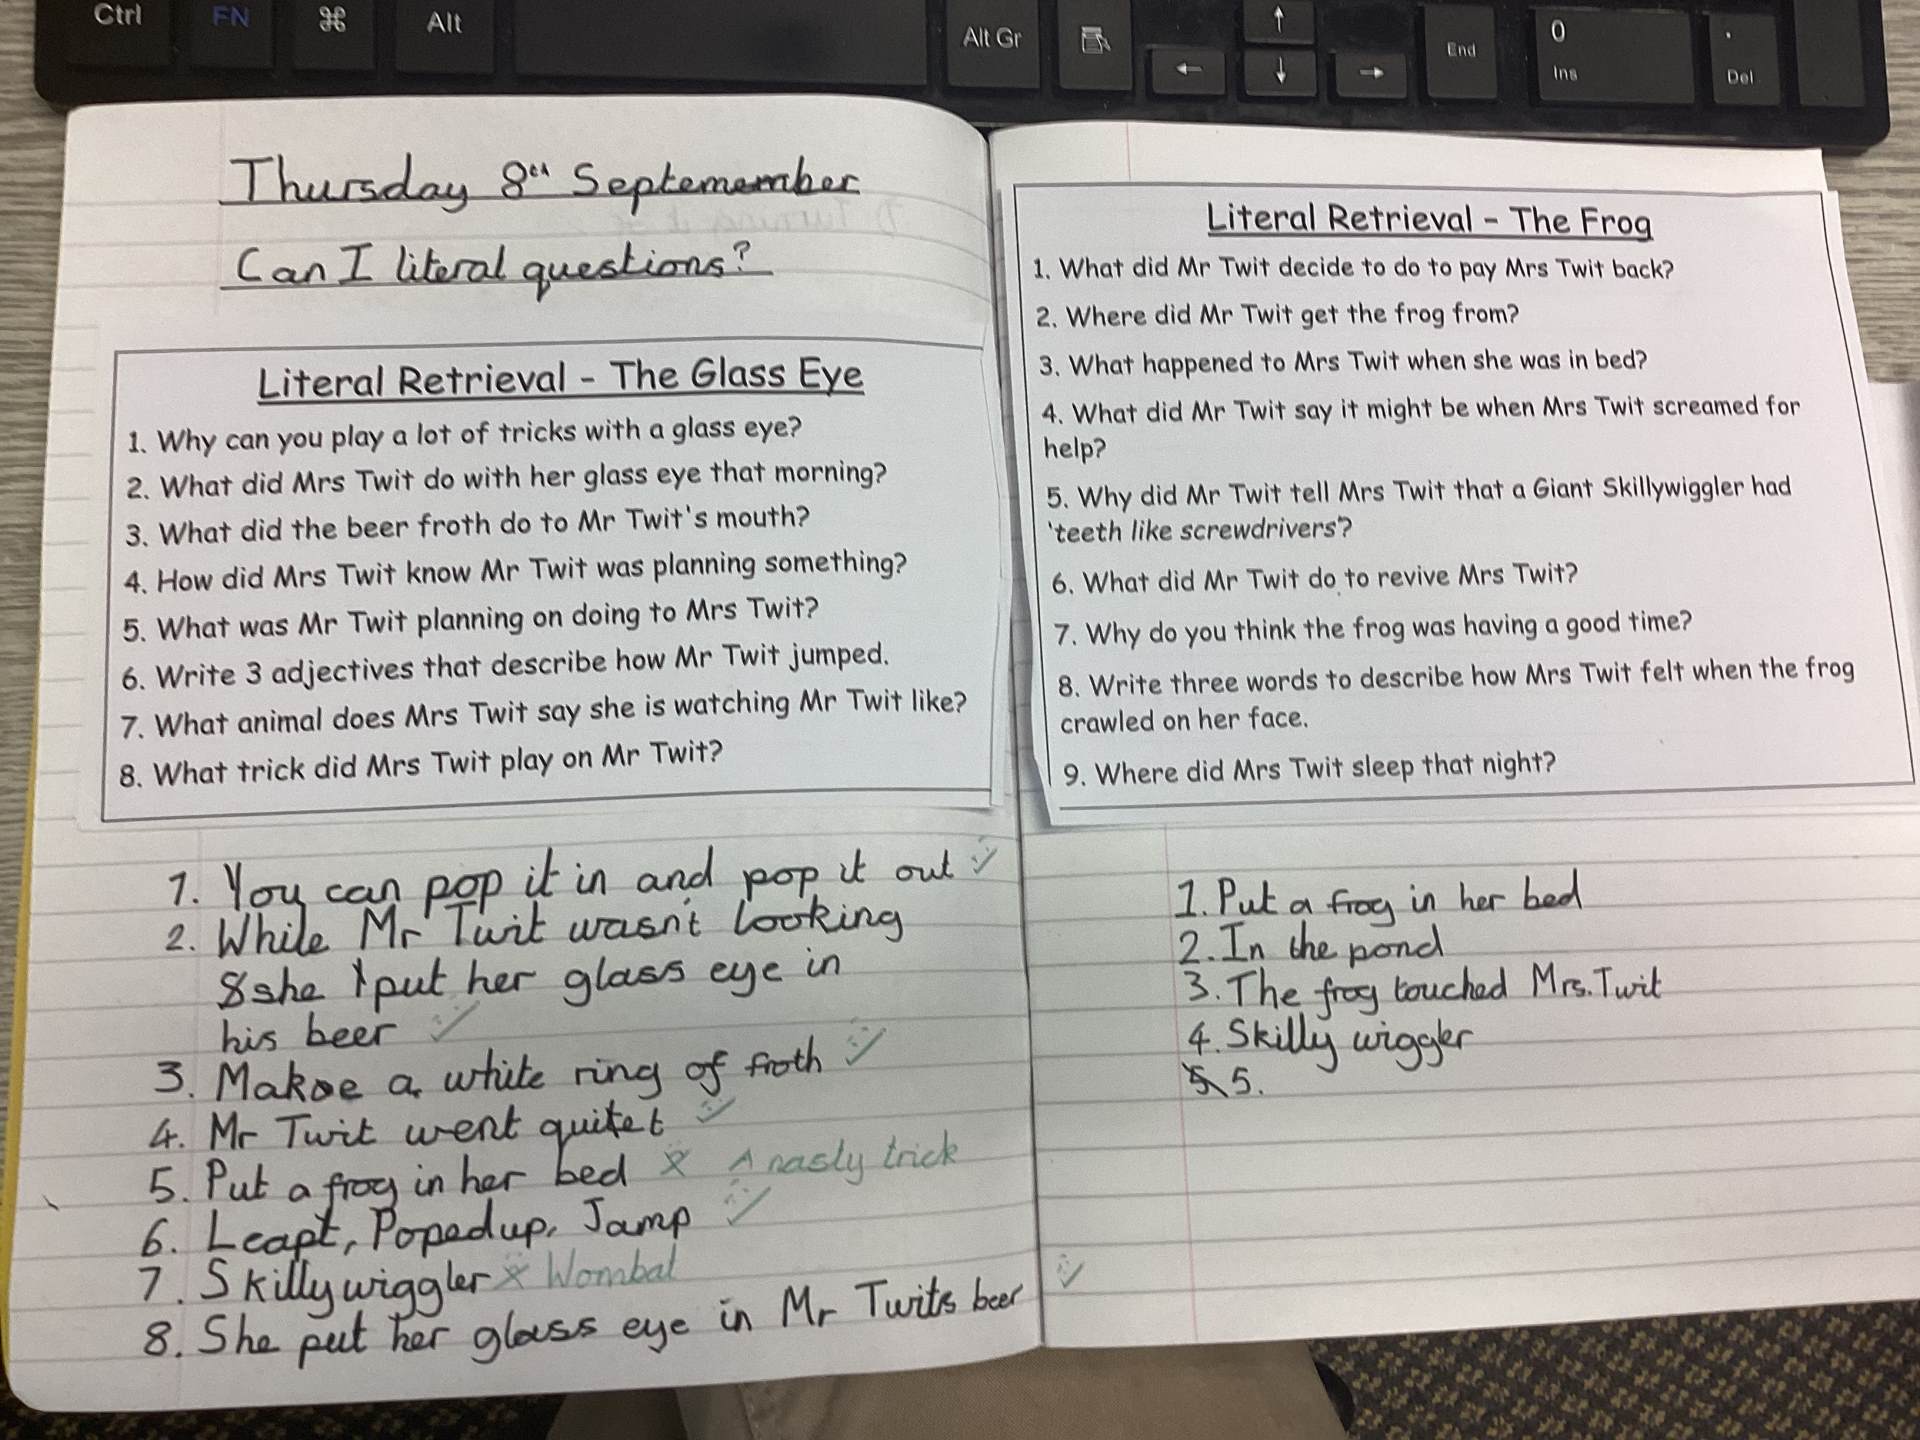 Ctrl FN ⌘ Alt Alt Gr ↑ End 0 .
← ↓ → Ins Del
Thursday 8th Septemember
Can I literal questions?
Literal Retrieval - The Glass Eye
1. Why can you play a lot of tricks with a glass eye?
2. What did Mrs Twit do with her glass eye that morning?
3. What did the beer froth do to Mr Twit's mouth?
4. How did Mrs Twit know Mr Twit was planning something?
5. What was Mr Twit planning on doing to Mrs Twit?
6. Write 3 adjectives that describe how Mr Twit jumped.
7. What animal does Mrs Twit say she is watching Mr Twit like?
8. What trick did Mrs Twit play on Mr Twit?
1. You can pop it in and pop it out
2. While Mr Twit wasn't looking
she put her glass eye in
his beer
3. Make a white ring of froth
4. Mr Twit went quitet
5. Put a frog in her bed A nasty trick
6. Leapt, Poped up, Jamp
7. Skillywiggler Wombat
8. She put her glass eye in Mr Twits beer
Literal Retrieval - The Frog
1. What did Mr Twit decide to do to pay Mrs Twit back?
2. Where did Mr Twit get the frog from?
3. What happened to Mrs Twit when she was in bed?
4. What did Mr Twit say it might be when Mrs Twit screamed for
help?
5. Why did Mr Twit tell Mrs Twit that a Giant Skillywiggler had
'teeth like screwdrivers'?
6. What did Mr Twit do to revive Mrs Twit?
7. Why do you think the frog was having a good time?
8. Write three words to describe how Mrs Twit felt when the frog
crawled on her face.
9. Where did Mrs Twit sleep that night?
1. Put a frog in her bed
2. In the pond
3. The frog touched Mrs. Twit
4. Skilly wiggler
5.